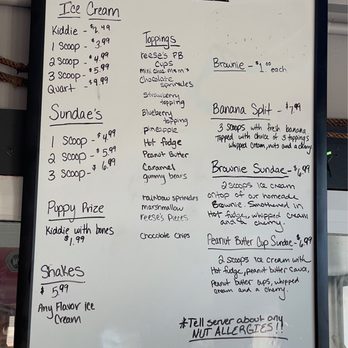 Ice Cream
Kiddie - $2.49
1 Scoop - $3.99
2 Scoop - $4.99
3 Scoop - $5.99
Quart - $9.99
Sundae's
1 Scoop - $4.99
2 Scoop - $5.99
3 Scoop - $6.99
Puppy Prize
Kiddie with bones
$1.99
Shakes
$5.99
Any Flavor Ice
Cream
Toppings
reese's PB
Cups
Mini Choc M&M's
Chocolate
sprinkles
Strawberry
topping
Blueberry
topping
pineapple
Hot fudge
Peanut Butter
Caramel
gummy bears
rainbow sprinkles
marshmallow
Reese's Pieces
Chocolate Chips
Brownie - $1.00 each
Banana Split - $7.99
3 scoops with fresh banana
topped with choice of 3 toppings
whipped cream, nuts and a cherry
Brownie Sundae - $6.99
2 scoops ice cream
on top of our homemade
Brownie. Smothered in
Hot fudge, whipped cream
and a cherry
Peanut Butter Cup Sundae - $6.99
2 scoops ice cream with
Hot fudge, peanut butter sauce,
Peanut butter cups, whipped
cream and a cherry.
*Tell server about any
NUT ALLERGIES!!